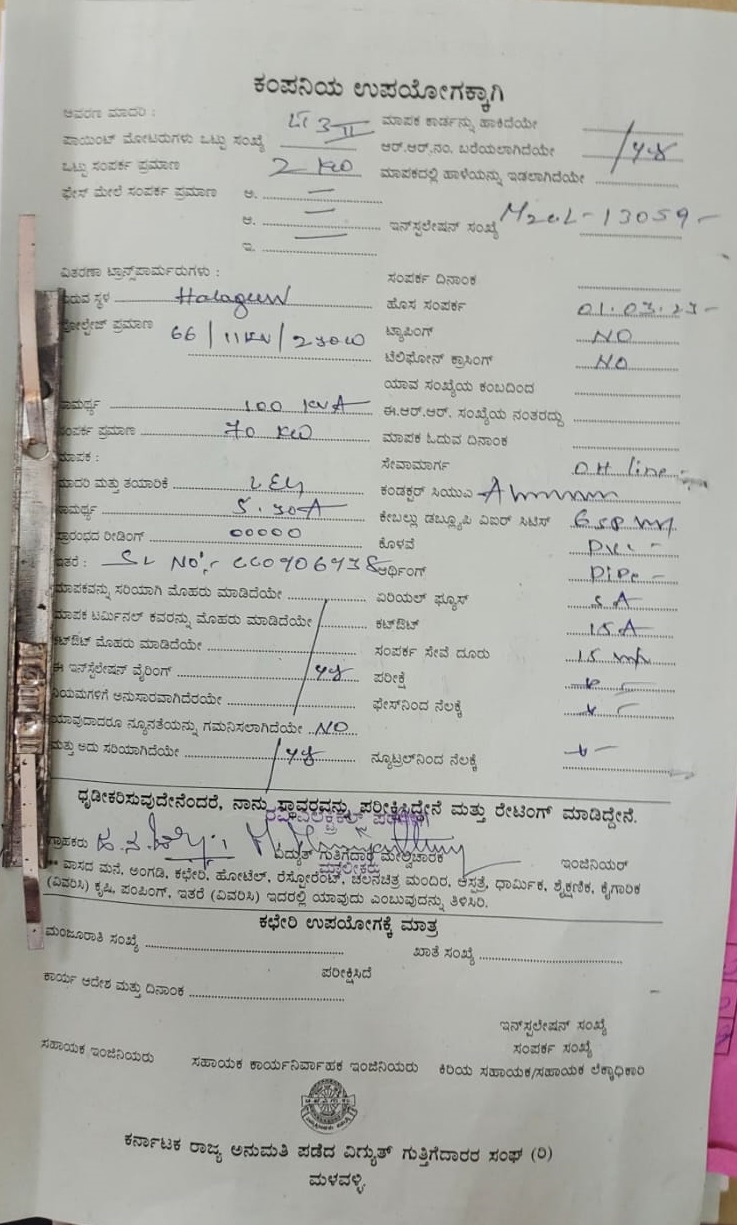 ಕಂಪನಿಯ ಉಪಯೋಗಕ್ಕಾಗಿ
ಆವರಣ ಮಾದರಿ : LT 3 II ಮಾಪಕ ಕಾರ್ಡನ್ನು ಹಾಕಿದೆಯೇ
ಪಾಯಿಂಟ್ ಮೋಟರುಗಳು ಒಟ್ಟು ಸಂಖ್ಯೆ ಆರ್.ಆರ್.ನಂ. ಬರೆಯಲಾಗಿದೆಯೇ
ಒಟ್ಟು ಸಂಪರ್ಕ ಪ್ರಮಾಣ 2 KW ಮಾಪಕದಲ್ಲಿ ಹಾಳೆಯನ್ನು ಇಡಲಾಗಿದೆಯೇ
ಫೇಸ್ ಮೇಲೆ ಸಂಪರ್ಕ ಪ್ರಮಾಣ ಅ. —
ಆ. — ಇನ್‌ಸ್ಟಲೇಷನ್ ಸಂಖ್ಯೆ M20L-13059-
ಇ. —
ವಿತರಣಾ ಟ್ರಾನ್ಸ್‌ಪಾರ್ಮರುಗಳು : ಸಂಪರ್ಕ ದಿನಾಂಕ
ಸ್ಥಳ Halagur ಹೊಸ ಸಂಪರ್ಕ 01.03.23-
ಪ್ರಮಾಣ 66/11KV/230W ಟ್ಯಾಪಿಂಗ್ NO
ಟೆಲಿಫೋನ್ ಕ್ರಾಸಿಂಗ್ NO
ಯಾವ ಸಂಖ್ಯೆಯ ಕಂಬದಿಂದ
100 KVA ಈ.ಆರ್.ಆರ್. ಸಂಖ್ಯೆಯ ನಂತರದ್ದು
ಸಂಪರ್ಕ ಪ್ರಮಾಣ 70 KW ಮಾಪಕ ಓದುವ ದಿನಾಂಕ
ಮಾಪಕ : ಸೇವಾಮಾರ್ಗ OH line -
ಮಾದರಿ ಮತ್ತು ತಯಾರಿಕೆ ಕಂಡಕ್ಟರ್ ಸಿಯುಎ
5.30A ಕೇಬಲ್ಲು ಡಬ್ಲ್ಯೂಪಿ ವಿಐರ್ ಸಿಟಿಸ್
ಪ್ರಾರಂಭದ ರೀಡಿಂಗ್ 00000 ಕೊಳವೆ PVC -
ಇತರೆ : SL NO:- ಆರ್ಥಿಂಗ್ PiPe -
ಮಾಪಕವನ್ನು ಸರಿಯಾಗಿ ಮೊಹರು ಮಾಡಿದೆಯೇ ಏರಿಯಲ್ ಫ್ಯೂಸ್ 5 A
ಮಾಪಕ ಟರ್ಮಿನಲ್ ಕವರನ್ನು ಮೊಹರು ಮಾಡಿದೆಯೇ ಕಟ್‌ಔಟ್ 15 A
ಕಟ್‌ಔಟ್ ಮೊಹರು ಮಾಡಿದೆಯೇ ಸಂಪರ್ಕ ಸೇವೆ ದೂರು
ಈ ಇನ್‌ಸ್ಟಲೇಷನ್ ವೈರಿಂಗ್ ಪರೀಕ್ಷೆ
ನಿಯಮಗಳಿಗೆ ಅನುಸಾರವಾಗಿದೆರೆಯೇ ಫೇಸ್‌ನಿಂದ ನೆಲಕ್ಕೆ
ಯಾವುದಾದರೂ ನ್ಯೂನತೆಯನ್ನು ಗಮನಿಸಲಾಗಿದೆಯೇ NO
ಮತ್ತು ಅದು ಸರಿಯಾಗಿದೆಯೇ ನ್ಯೂಟ್ರಲ್‌ನಿಂದ ನೆಲಕ್ಕೆ
ಧೃಡೀಕರಿಸುವುದೇನೆಂದರೆ, ನಾನು ಸ್ಥಾವರವನ್ನು ಪರೀಕ್ಷಿಸಿದ್ದೇನೆ ಮತ್ತು ರೇಟಿಂಗ್ ಮಾಡಿದ್ದೇನೆ.
ಗ್ರಾಹಕರು ವಿದ್ಯುತ್ ಗುತ್ತಿಗೆದಾರ ಮೇಲ್ವಿಚಾರಕ ಇಂಜಿನಿಯರ್
** ವಾಸದ ಮನೆ, ಅಂಗಡಿ, ಕಛೇರಿ, ಹೋಟೆಲ್, ರೆಸ್ಟೋರೆಂಟ್, ಚಲನಚಿತ್ರ ಮಂದಿರ, ಆಸ್ಪತ್ರೆ, ಧಾರ್ಮಿಕ, ಶೈಕ್ಷಣಿಕ, ಕೈಗಾರಿಕ
(ವಿವರಿಸಿ) ಕೃಷಿ, ಪಂಪಿಂಗ್, ಇತರೆ (ವಿವರಿಸಿ) ಇದರಲ್ಲಿ ಯಾವುದು ಎಂಬುವುದನ್ನು ತಿಳಿಸಿರಿ.
ಕಛೇರಿ ಉಪಯೋಗಕ್ಕೆ ಮಾತ್ರ
ಮಂಜೂರಾತಿ ಸಂಖ್ಯೆ ಖಾತೆ ಸಂಖ್ಯೆ
ಪರೀಕ್ಷಿಸಿದೆ
ಕಾರ್ಯ ಆದೇಶ ಮತ್ತು ದಿನಾಂಕ
ಇನ್‌ಸ್ಟಲೇಷನ್ ಸಂಖ್ಯೆ
ಸಂಪರ್ಕ ಸಂಖ್ಯೆ
ಸಹಾಯಕ ಇಂಜಿನಿಯರು ಸಹಾಯಕ ಕಾರ್ಯನಿರ್ವಾಹಕ ಇಂಜಿನಿಯರು ಕಿರಿಯ ಸಹಾಯಕ/ಸಹಾಯಕ ಲೆಕ್ಕಾಧಿಕಾರಿ
ಕರ್ನಾಟಕ ರಾಜ್ಯ ಅನುಮತಿ ಪಡೆದ ವಿದ್ಯುತ್ ಗುತ್ತಿಗೆದಾರರ ಸಂಘ (ರಿ)
ಮಳವಳ್ಳಿ